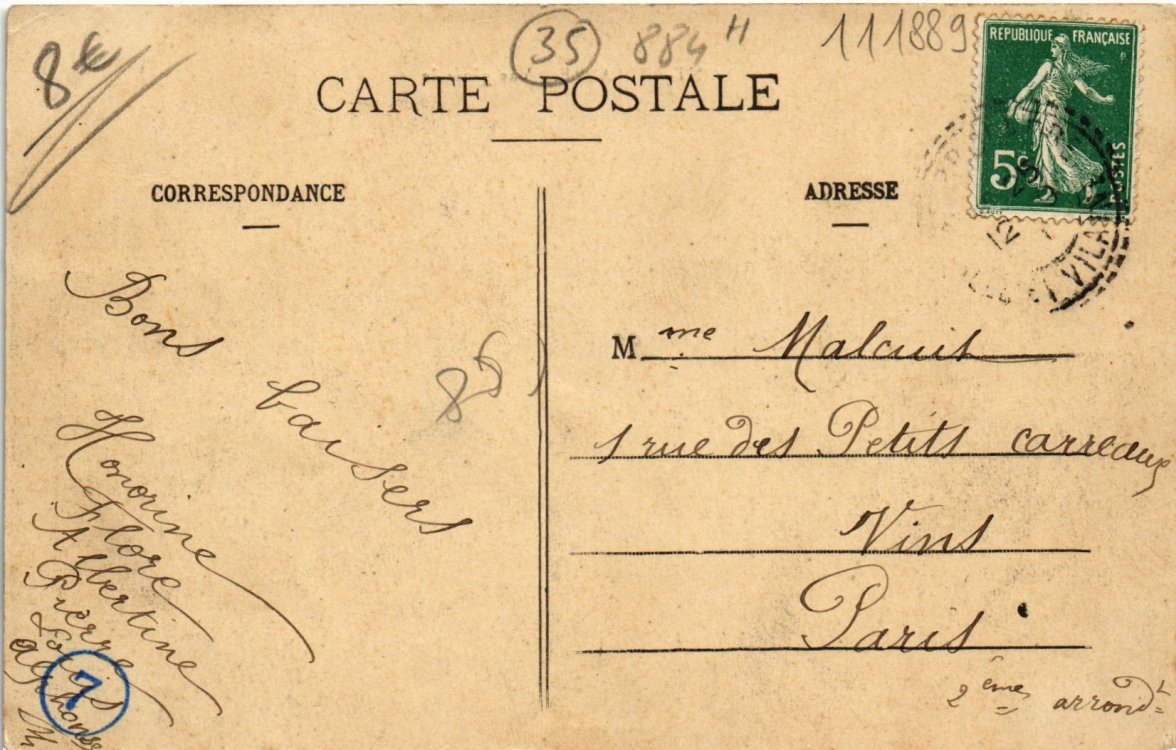 8€
35
884 H
111889
CARTE POSTALE
REPUBLIQUE FRANÇAISE
5c
POSTES
VILAINE
CORRESPONDANCE
ADRESSE
Bons
baisers
Honorine
Flore
Albertine
Pierre
Louis
Alphonse
7
M me Malcuit
1 rue des Petits carreaux
Vins
Paris
2 ème arrondt